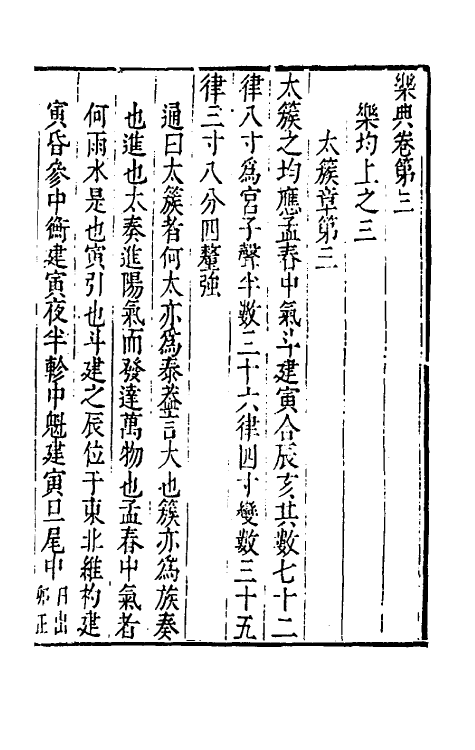 樂典卷第三
樂均上之三
太簇章第三
太簇之均應孟春中氣斗建寅合辰亥其數七十二
律八寸爲宮子聲半數三十六律四寸變數三十五
律三寸八分四釐強
通曰太簇者何太亦爲泰葢言大也簇亦爲族奏
也進也太奏進陽氣而發達萬物也孟春中氣者
何雨水是也寅引也斗建之辰位于東北維杓建
寅昏參中衡建寅夜半軫中魁建寅旦尾中日出
卯正